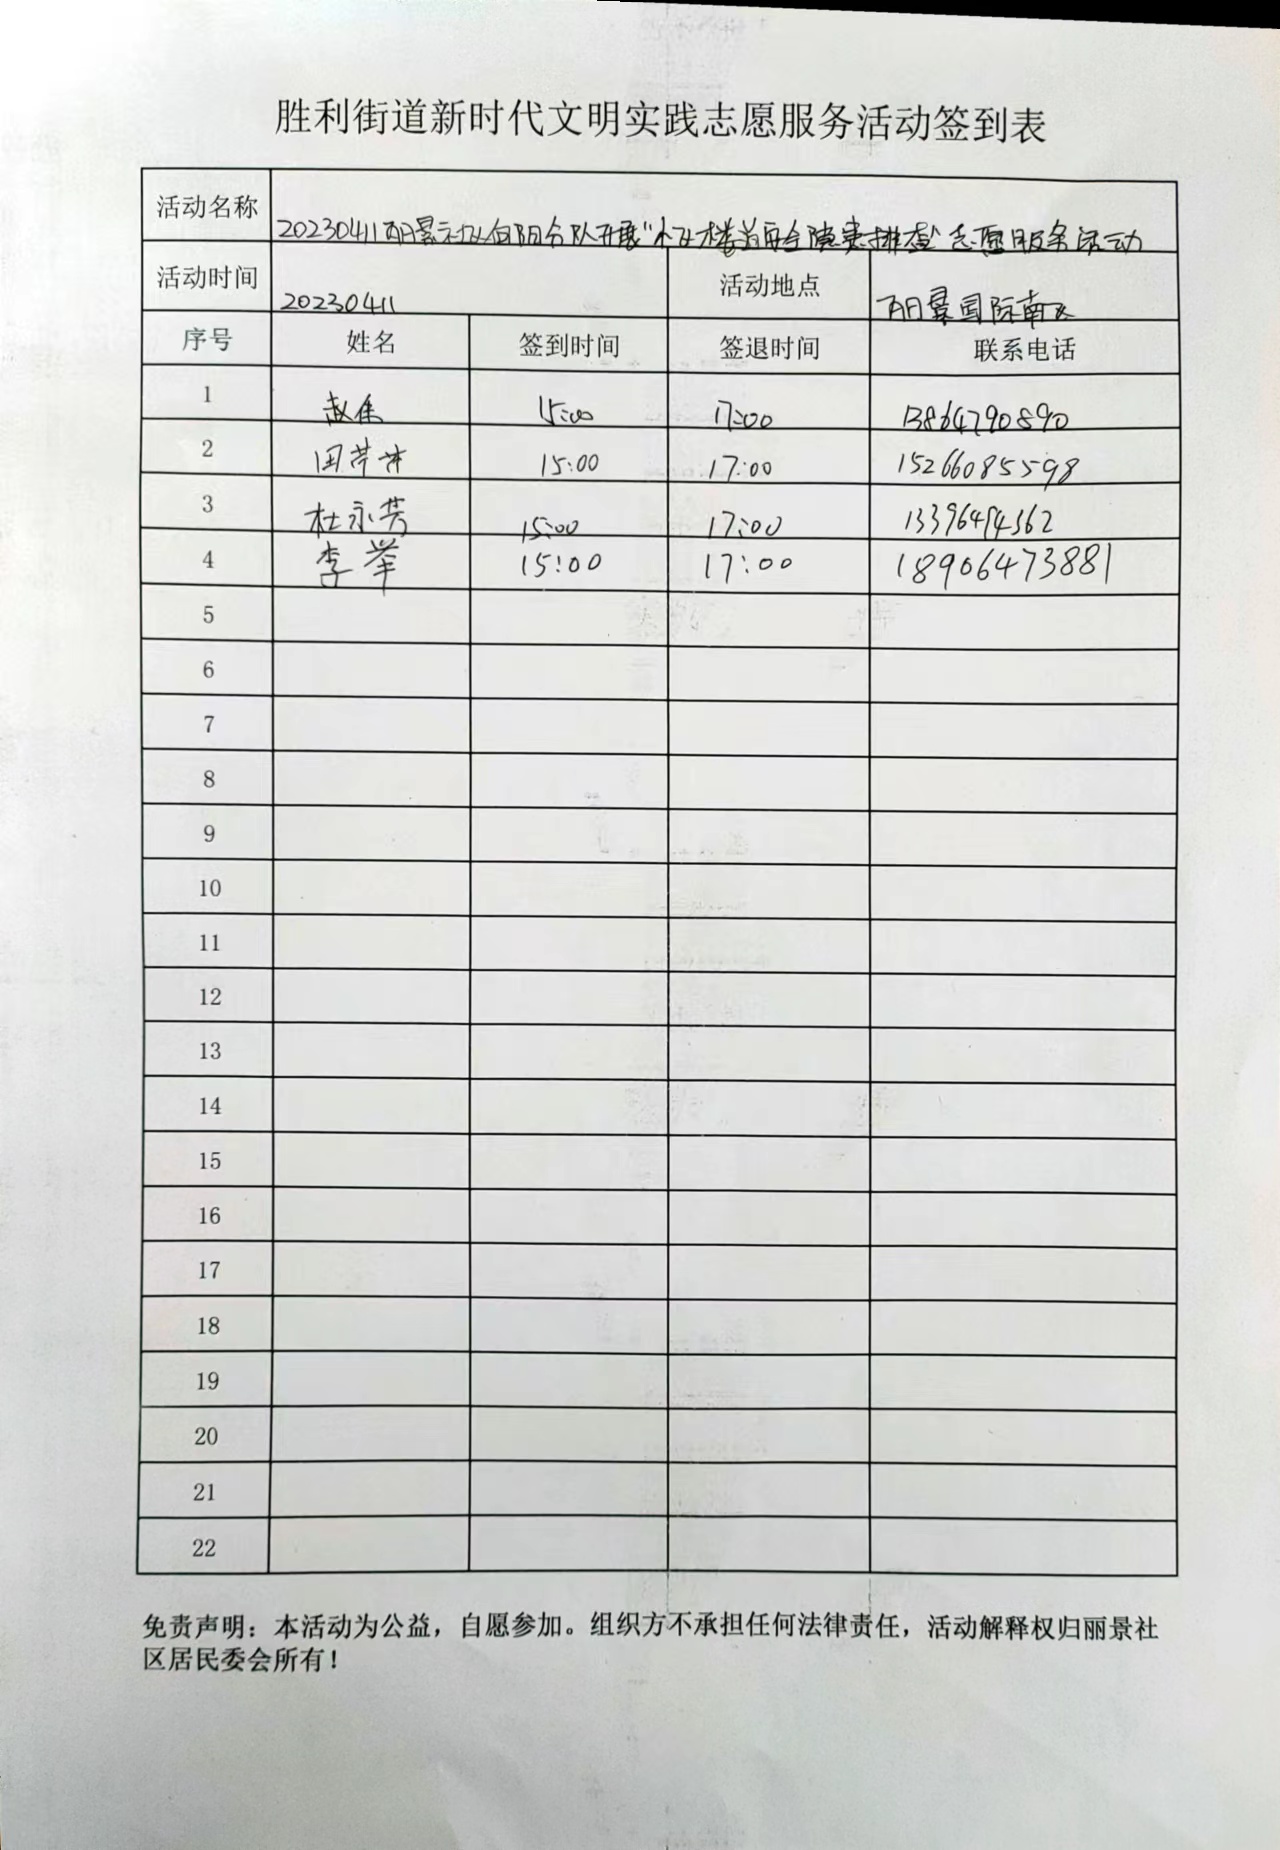 胜利街道新时代文明实践志愿服务活动签到表
活动名称 20230411丽景社区向阳分队开展"小区楼道安全隐患排查"志愿服务活动
活动时间 20230411 活动地点 丽景国际南区
序号 姓名 签到时间 签退时间 联系电话
1 赵佳 15:00 17:00 13864790890
2 田芹芹 15:00 17:00 15266085598
3 杜永芳 15:00 17:00
4 李举 15:00 17:00 18906473881
5
6
7
8
9
10
11
12
13
14
15
16
17
18
19
20
21
22
免责声明：本活动为公益，自愿参加。组织方不承担任何法律责任，活动解释权归丽景社
区居民委会所有！